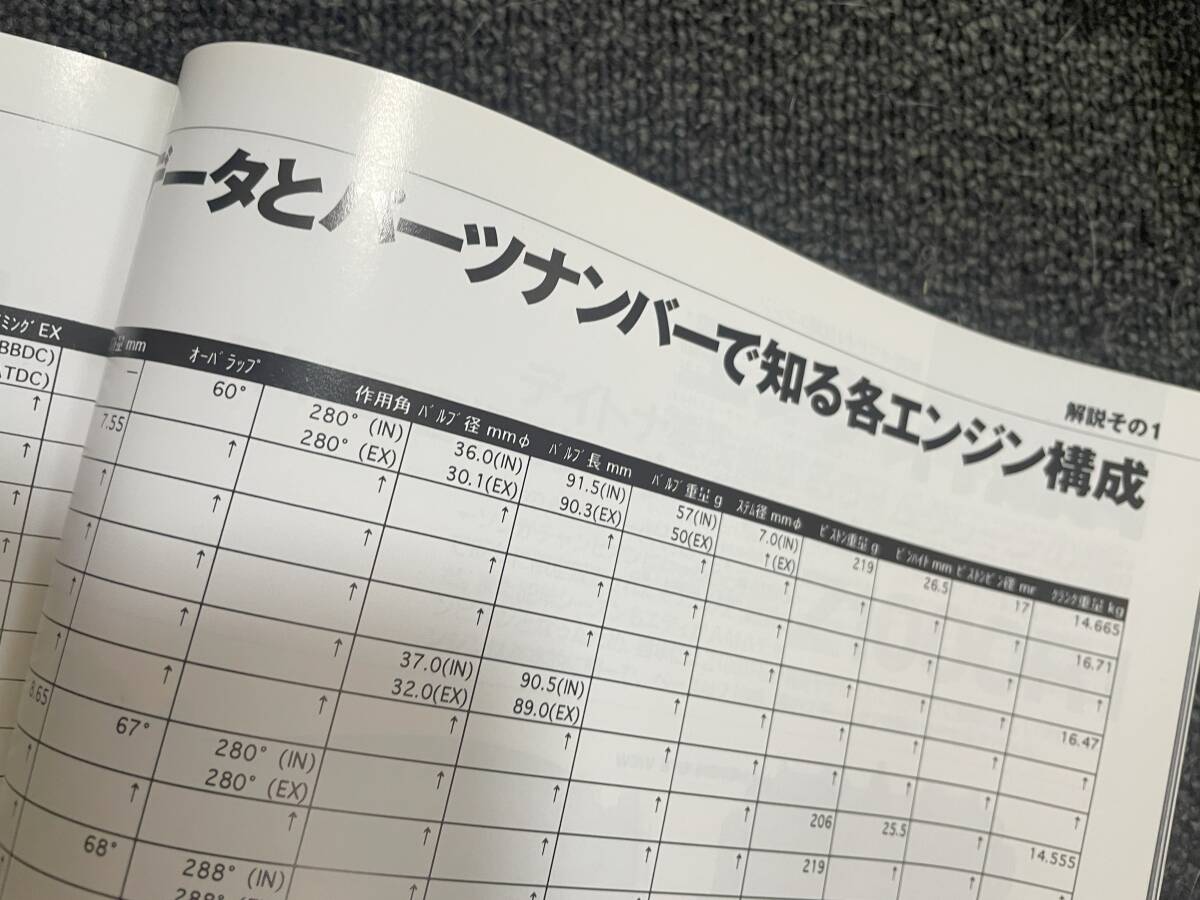 解説その1
データとパーツナンバーで知る各エンジン構成
ミングEX オーバラップ 作用角 バルブ径 mmφ バルブ長 mm バルブ重量 g ステム径 mmφ ピストン重量 g ピンハイト mm ピストンピン径 mm クランク重量 kg
BBDC) – 60° 280° (IN) 36.0(IN) 91.5(IN) 57(IN) 7.0(IN) 219 26.5 17 14.665
ATDC) 280° (EX) 30.1(EX) 90.3(EX) 50(EX) ↑(EX)
↑ 7.55 ↑ ↑ ↑ ↑ ↑ ↑ ↑ ↑ ↑ 16.71
↑ ↑ ↑ ↑ ↑ ↑ ↑ ↑ ↑ ↑ ↑ ↑
↑ ↑ ↑ ↑ ↑ ↑ ↑ ↑ ↑ ↑ ↑ 16.47
↑ ↑ ↑ ↑ 37.0(IN) 90.5(IN) ↑ ↑ ↑ ↑ ↑ ↑
32.0(EX) 89.0(EX)
↑ ↑ ↑ ↑ ↑ ↑ ↑ ↑ ↑ ↑
8.65 67° 280° (IN) ↑ ↑ ↑ ↑ 206 25.5 ↑ 14.555
280° (EX)
↑ ↑ ↑ ↑ ↑ ↑ ↑ 219 ↑ ↑
↑ 68° 288° (IN) ↑
288° (EX)